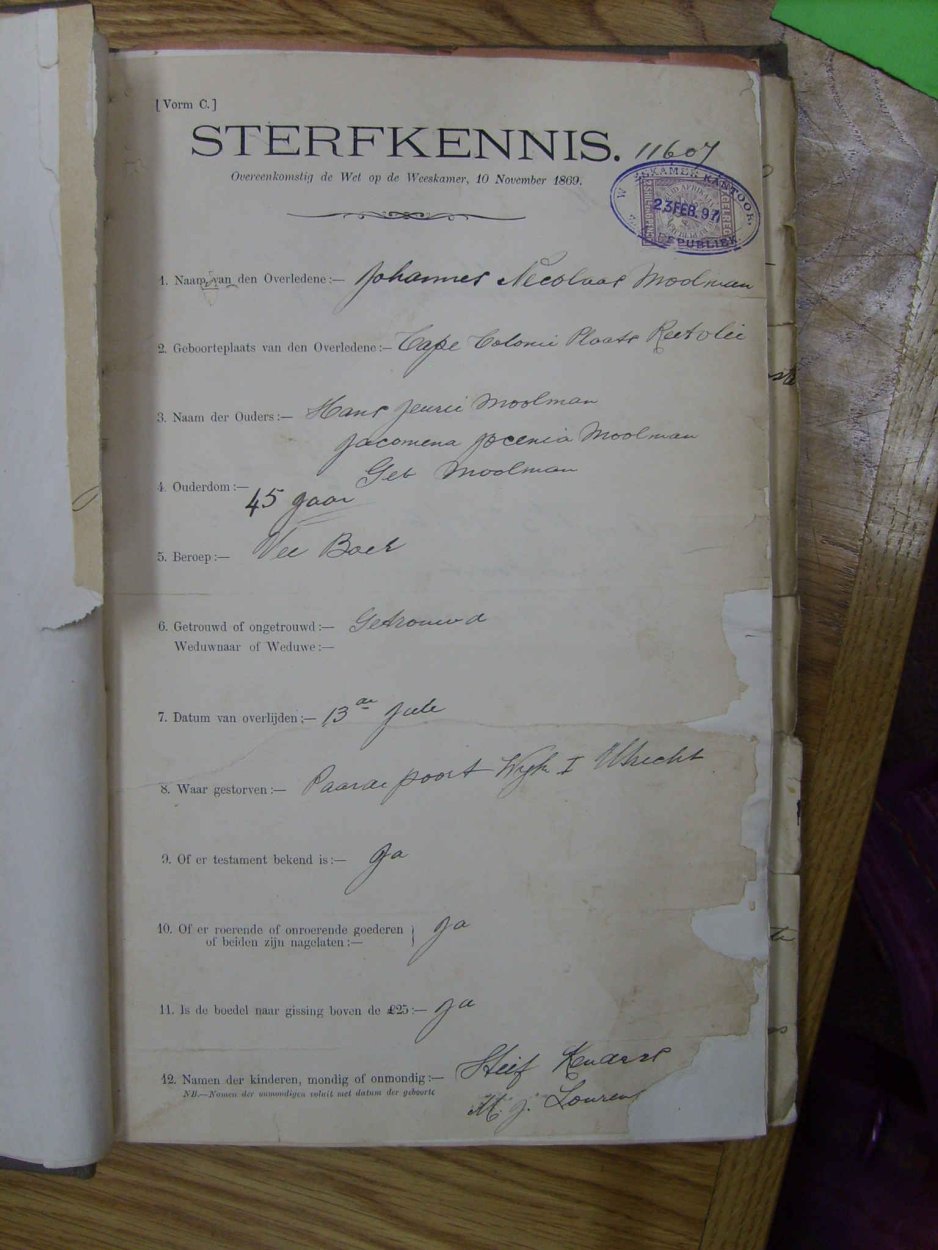 [Vorm C.]
STERFKENNIS. 11607
Overeenkomstig de Wet op de Weeskamer, 10 November 1869.
WEESKAMER KANTOOR.
23 FEB. 97
REPUBLIEK
1. Naam van den Overledene:— Johannes Nicolaas Moolman
2. Geboorteplaats van den Overledene:— Cape Colonie Plaats Rietvlei
3. Naam der Ouders:— Hans Jeurie Moolman
Jacomena Jocenia Moolman
Geb Moolman
4. Ouderdom:— 45 Jaar
5. Beroep:— Vee Boer
6. Getrouwd of ongetrouwd:— Getrouwd
Weduwnaar of Weduwe:—
7. Datum van overlijden:— 13de Julie
8. Waar gestorven:— Paarde poort Wyk I Utrecht
9. Of er testament bekend is:— Ja
10. Of er roerende of onroerende goederen } Ja
of beiden zijn nagelaten:—
11. Is de boedel naar gissing boven de £25:— Ja
12. Namen der kinderen, mondig of onmondig:— Stief Kinders
NB.—Namen der onmondigen voluit met datum der geboorte
M. J. Lourens